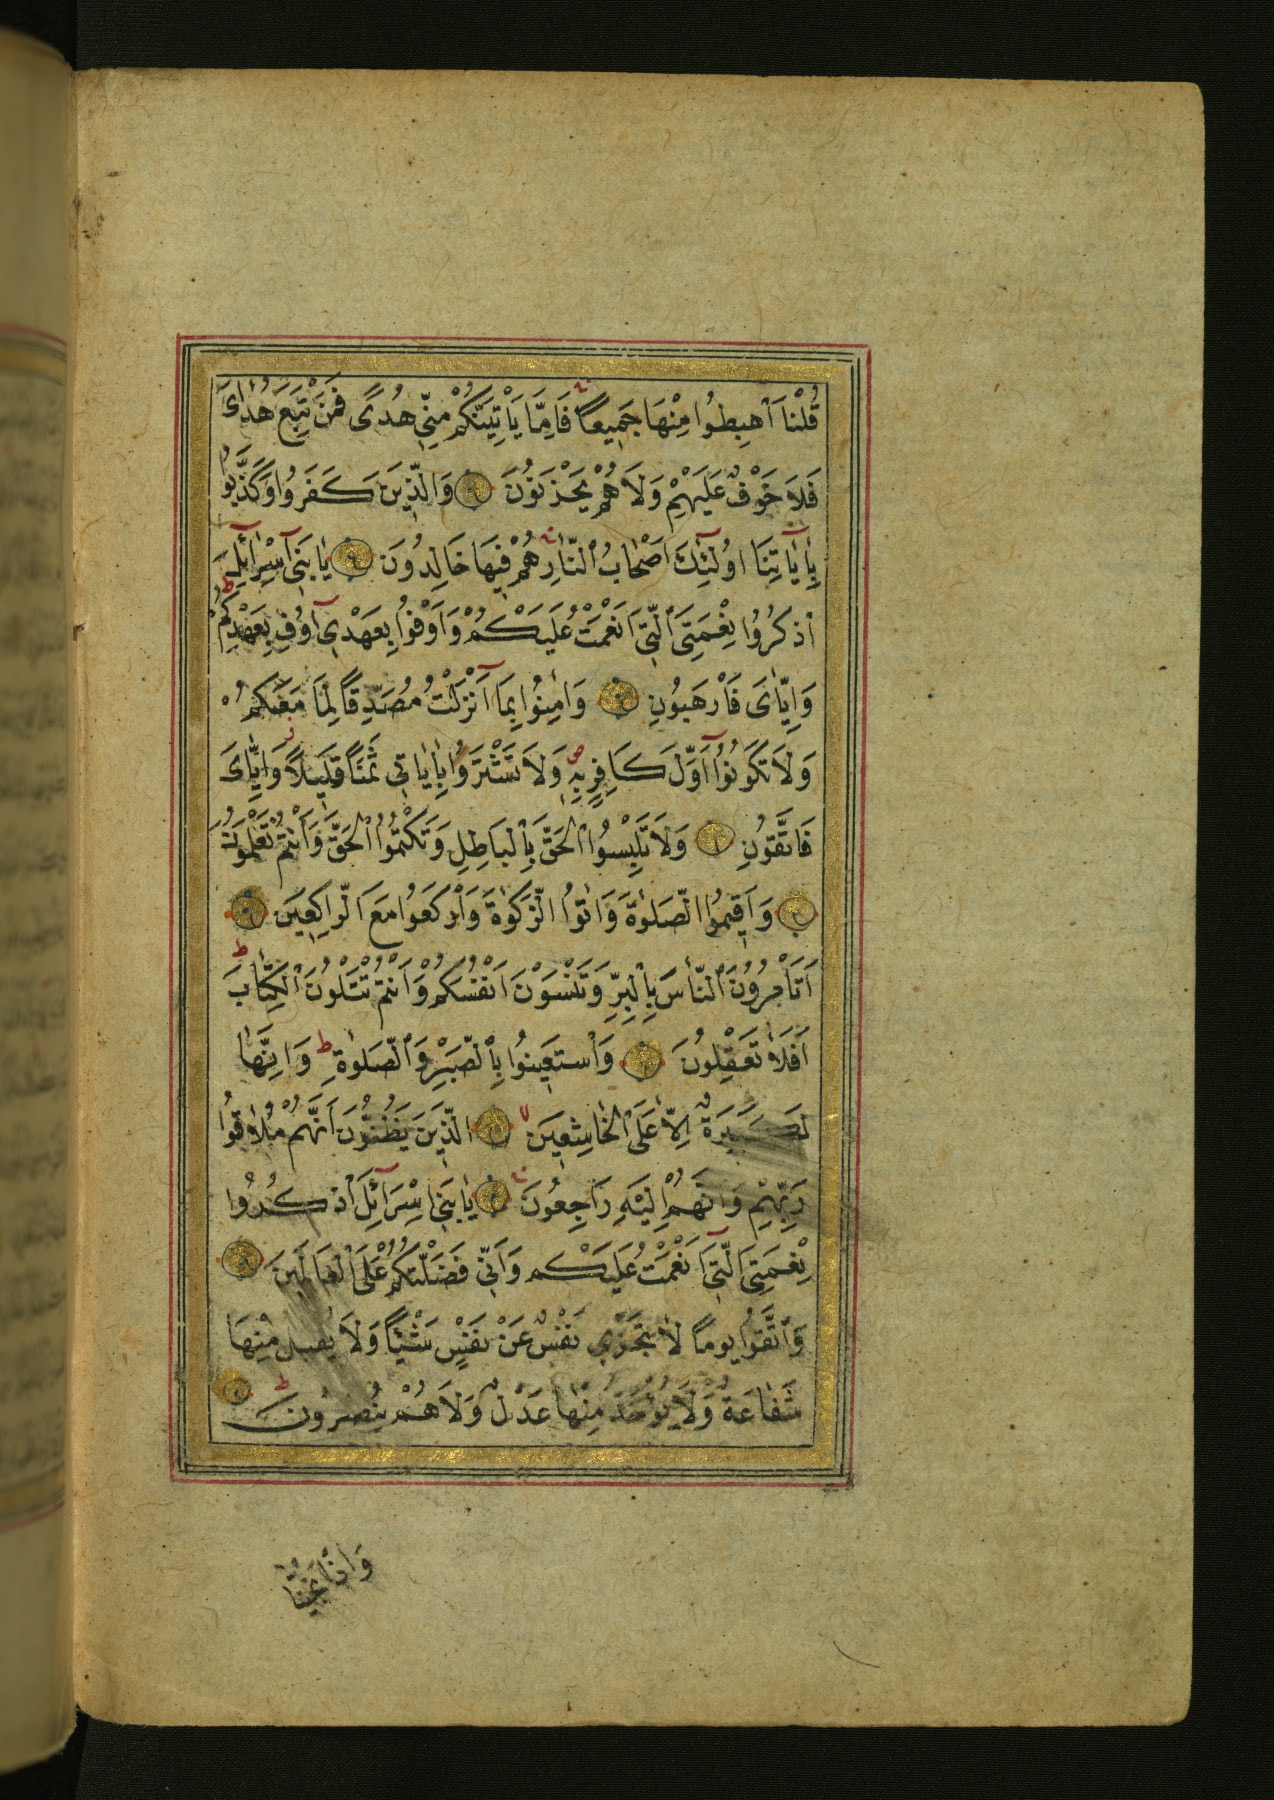 قُلْنَا اَهْبِطُوا مِنْهَا جَمِيعًا فَاِمَّا يَاْتِيَنَّكُمْ مِنِّي هُدًى فَمَنْ تَبِعَ هُدَايَ
فَلَا خَوْفٌ عَلَيْهِمْ وَلَا هُمْ يَحْزَنُونَ وَالَّذِينَ كَفَرُوا وَكَذَّبُوا
بِاٰيَاتِنَا اُولٰئِكَ اَصْحَابُ النَّارِ هُمْ فِيهَا خَالِدُونَ يَابَنِي اِسْرَائِلَ
اذْكُرُوا نِعْمَتِيَ الَّتِي اَنْعَمْتُ عَلَيْكُمْ وَاَوْفُوا بِعَهْدِي اُوفِ بِعَهْدِكُمْ
وَاِيَّايَ فَارْهَبُونِ وَاٰمِنُوا بِمَا اَنْزَلْتُ مُصَدِّقًا لِمَا مَعَكُمْ
وَلَا تَكُونُوا اَوَّلَ كَافِرٍ بِهِ وَلَا تَشْتَرُوا بِاٰيَاتِي ثَمَنًا قَلِيلًا وَاِيَّايَ
فَاتَّقُونِ وَلَا تَلْبِسُوا الْحَقَّ بِالْبَاطِلِ وَتَكْتُمُوا الْحَقَّ وَاَنْتُمْ تَعْلَمُونَ
وَاَقِيمُوا الصَّلٰوةَ وَاٰتُوا الزَّكٰوةَ وَارْكَعُوا مَعَ الرَّاكِعِينَ
اَتَاْمُرُونَ النَّاسَ بِالْبِرِّ وَتَنْسَوْنَ اَنْفُسَكُمْ وَاَنْتُمْ تَتْلُونَ الْكِتَابَ
اَفَلَا تَعْقِلُونَ وَاسْتَعِينُوا بِالصَّبْرِ وَالصَّلٰوةِ وَاِنَّهَا
لَكَبِيرَةٌ اِلَّا عَلَى الْخَاشِعِينَ الَّذِينَ يَظُنُّونَ اَنَّهُمْ مُلَاقُوا
رَبِّهِمْ وَاَنَّهُمْ اِلَيْهِ رَاجِعُونَ يَابَنِي اِسْرَائِلَ اذْكُرُوا
نِعْمَتِيَ الَّتِي اَنْعَمْتُ عَلَيْكُمْ وَاَنِّي فَضَّلْتُكُمْ عَلَى الْعَالَمِينَ
وَاتَّقُوا يَوْمًا لَا تَجْزِي نَفْسٌ عَنْ نَفْسٍ شَيْئًا وَلَا يُقْبَلُ مِنْهَا
شَفَاعَةٌ وَلَا يُؤْخَذُ مِنْهَا عَدْلٌ وَلَا هُمْ يُنْصَرُونَ